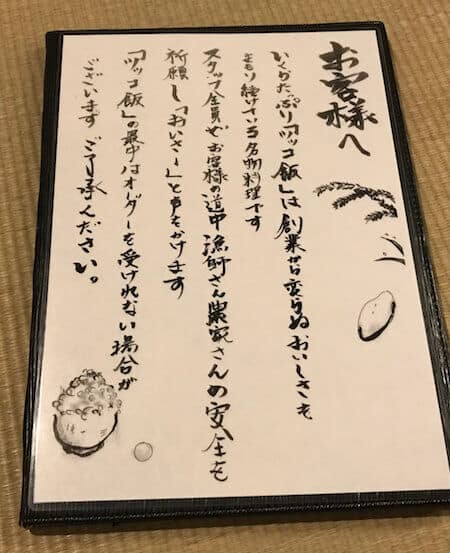 お客様へ
いくらたっぷり「ツッコ飯」は創業から変らぬおいしさを
まもり続けている名物料理です
スタッフ全員でお客様の道中漁師さん農家さんの安全を
祈願し「おいさー」と声をかけます
「ツッコ飯」の最中はオーダーを受けれない場合が
ございます ご了承ください。